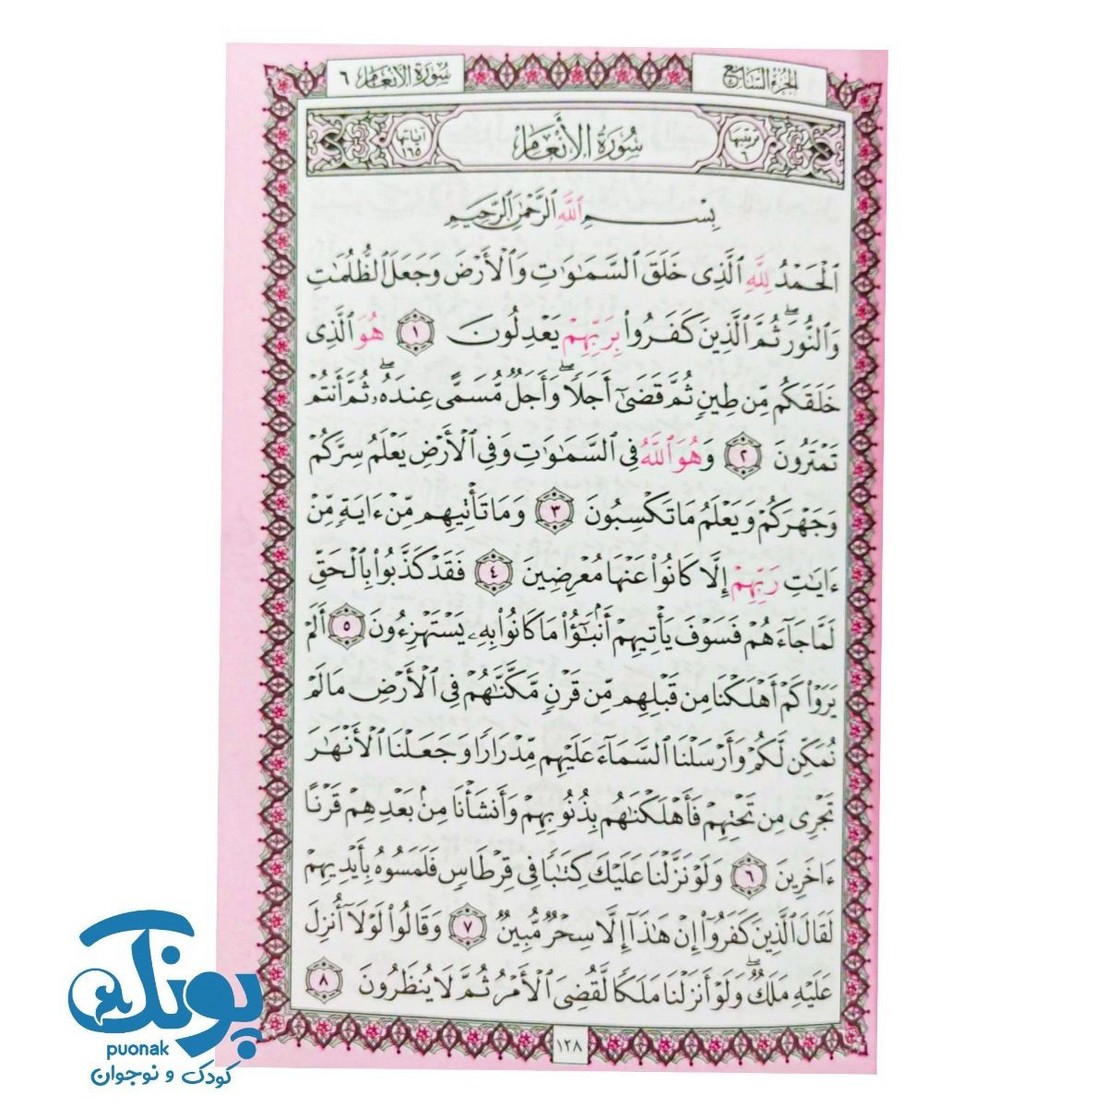 الجزء السابع
سورة الأنعام ٦
ترتيبها ٦
سُورَةُ الأَنْعَام
آياتها ١٦٥
بِسْمِ ٱللَّهِ ٱلرَّحْمَٰنِ ٱلرَّحِيمِ
ٱلْحَمْدُ لِلَّهِ ٱلَّذِى خَلَقَ ٱلسَّمَٰوَٰتِ وَٱلْأَرْضَ وَجَعَلَ ٱلظُّلُمَٰتِ
وَٱلنُّورَ ۖ ثُمَّ ٱلَّذِينَ كَفَرُوا۟ بِرَبِّهِمْ يَعْدِلُونَ ١ هُوَ ٱلَّذِى
خَلَقَكُم مِّن طِينٍ ثُمَّ قَضَىٰٓ أَجَلًا ۖ وَأَجَلٌ مُّسَمًّى عِندَهُۥ ۖ ثُمَّ أَنتُمْ
تَمْتَرُونَ ٢ وَهُوَ ٱللَّهُ فِى ٱلسَّمَٰوَٰتِ وَفِى ٱلْأَرْضِ يَعْلَمُ سِرَّكُمْ
وَجَهْرَكُمْ وَيَعْلَمُ مَا تَكْسِبُونَ ٣ وَمَا تَأْتِيهِم مِّنْ ءَايَةٍ مِّنْ
ءَايَٰتِ رَبِّهِمْ إِلَّا كَانُوا۟ عَنْهَا مُعْرِضِينَ ٤ فَقَدْ كَذَّبُوا۟ بِٱلْحَقِّ
لَمَّا جَآءَهُمْ فَسَوْفَ يَأْتِيهِمْ أَنۢبَٰٓؤُا۟ مَا كَانُوا۟ بِهِۦ يَسْتَهْزِءُونَ ٥ أَلَمْ
يَرَوْا۟ كَمْ أَهْلَكْنَا مِن قَبْلِهِم مِّن قَرْنٍ مَّكَّنَّٰهُمْ فِى ٱلْأَرْضِ مَا لَمْ
نُمَكِّن لَّكُمْ وَأَرْسَلْنَا ٱلسَّمَآءَ عَلَيْهِم مِّدْرَارًا وَجَعَلْنَا ٱلْأَنْهَٰرَ
تَجْرِى مِن تَحْتِهِمْ فَأَهْلَكْنَٰهُم بِذُنُوبِهِمْ وَأَنشَأْنَا مِنۢ بَعْدِهِمْ قَرْنًا
ءَاخَرِينَ ٦ وَلَوْ نَزَّلْنَا عَلَيْكَ كِتَٰبًا فِى قِرْطَاسٍ فَلَمَسُوهُ بِأَيْدِيهِمْ
لَقَالَ ٱلَّذِينَ كَفَرُوٓا۟ إِنْ هَٰذَآ إِلَّا سِحْرٌ مُّبِينٌ ٧ وَقَالُوا۟ لَوْلَآ أُنزِلَ
عَلَيْهِ مَلَكٌ ۖ وَلَوْ أَنزَلْنَا مَلَكًا لَّقُضِىَ ٱلْأَمْرُ ثُمَّ لَا يُنظَرُونَ ٨
١٢٨
پونک
puonak
کودک و نوجوان